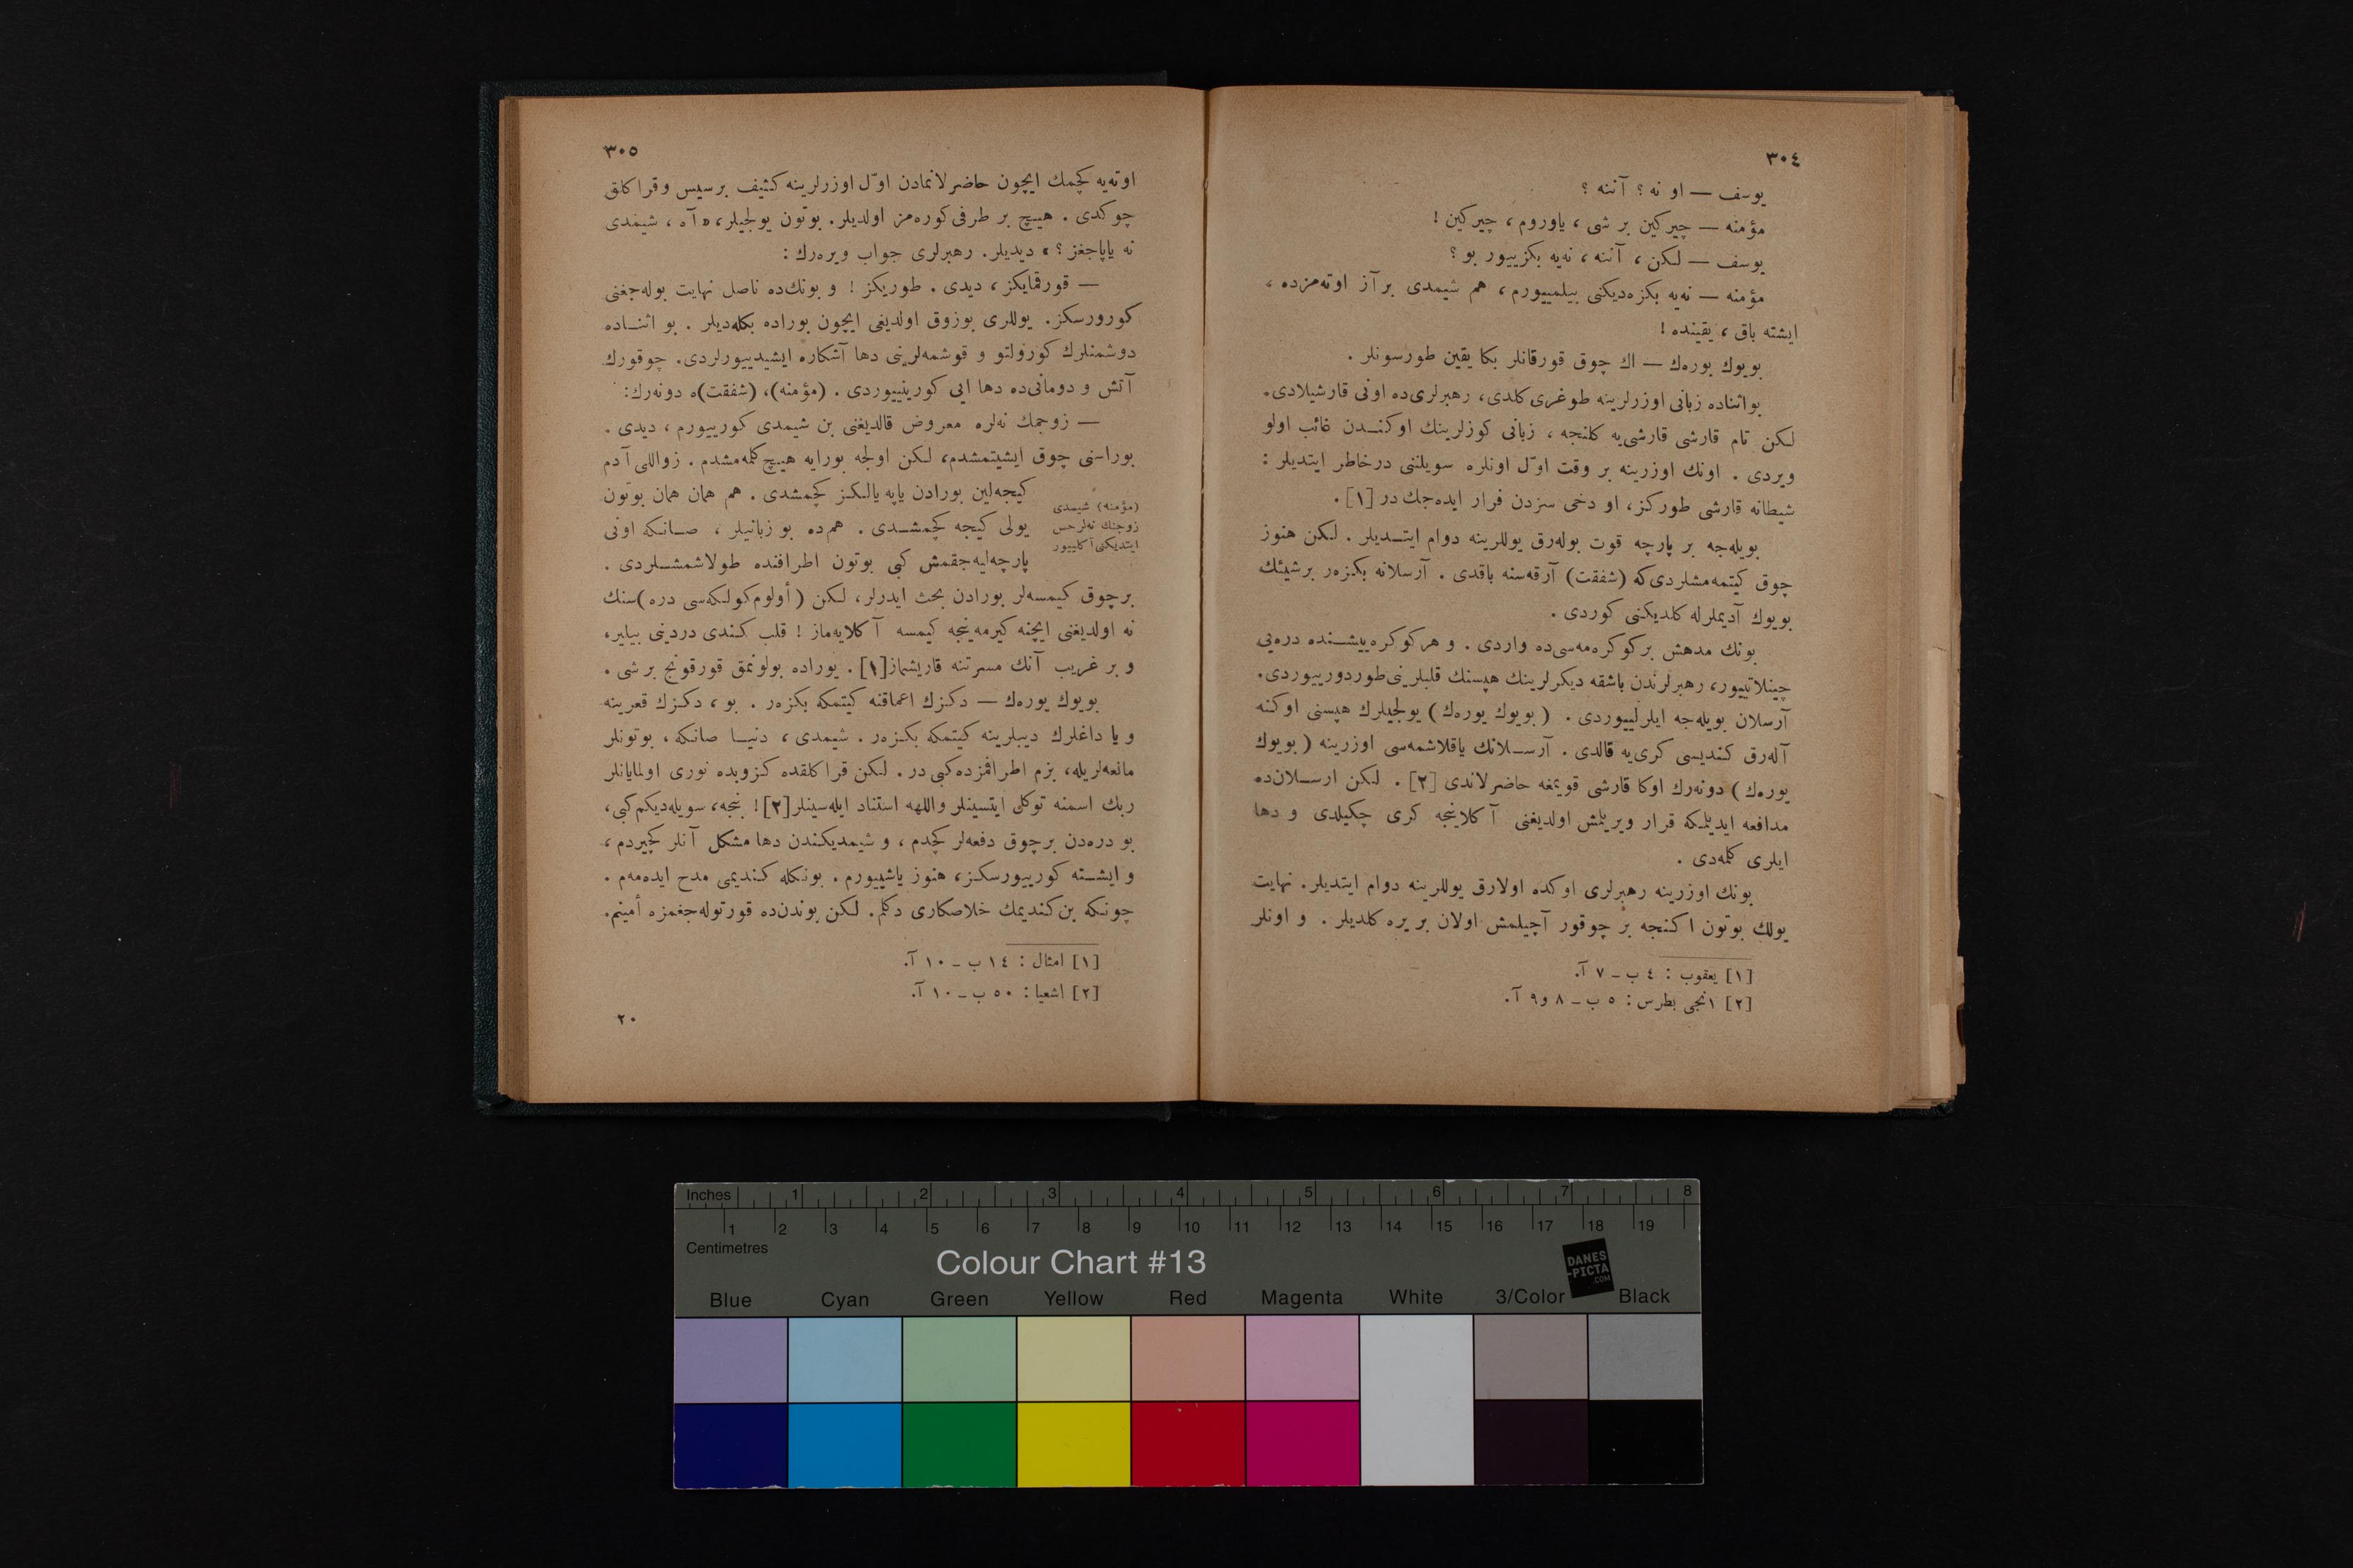 ٣٠٤
يوسف — او نه ؟ آننه ؟
مؤمنه — چيركين بر شی ، ياوروم ، چيركين !
يوسف — لكن ، آننه ، نه‌يه بكزييور بو ؟
مؤمنه — نه‌يه بكزه‌ديكنی بيلمييورم ، هم شيمدی بر آز اوته‌مزده ،
ايشته باق ، يقينده !
بويوك يوره‌ك — اك چوق قورقانلر بكا يقين طورسونلر .
بو اثناده زبانی اوزرلرينه طوغری كلدی، رهبرلری‌ده اونی قارشيلادی.
لكن تام قارشی قارشی‌يه كلنجه ، زبانی كوزلرينك اوكنـدن غائب اولو
ويردی . اونك اوزرينه بر وقت اوّل اونلره سويلننی درخاطر ايتديلر :
شيطانه قارشی طوركز، او دخی سزدن فرار ايده‌جك در [١] .
بويله‌جه بر پارچه قوت بوله‌رق يوللرينه دوام ايتـديلر . لكن هنوز
چوق كيتمه‌مشلردی‌كه (شفقت) آرقه‌سنه باقدی . آرسلانه بكزه‌ر برشيئك
بويوك آديملرله كلديكنی كوردی .
بونك مدهش بركوكره‌مه‌سی‌ده واردی . و هر كوكره‌ييشـنده دره‌يی
چينلاتييور، رهبرلرندن باشقه ديكرلرينك هپسنك قلبلرينی طوردورييوردی.
آرسلان بويله‌جه ايلرلييوردی . ( بويوك يوره‌ك ) يولجيلرك هپسنی اوكنه
آله‌رق كنديسی كری‌يه قالدی . آرسـلانك ياقلاشمه‌سی اوزرينه ( بويوك
يوره‌ك ) دونه‌رك اوكا قارشی قويمغه حاضرلاندی [٢] . لكن ارسـلان‌ده
مدافعه ايديلمكه قرار ويريلمش اولديغنی آكلاينجه كری چكيلدی و دها
ايلری كلمه‌دی .
بونك اوزرينه رهبرلری اوكده اولارق يوللرينه دوام ايتديلر. نهايت
يولك بوتون اكنجه بر چوقور آچيلمش اولان بر يره كلديلر . و اونلر
[١] يعقوب : ٤ ب ـ ٧ آ.
[٢] ١نجی بطرس : ٥ ب ـ ٨ و٩ آ.
٣٠٥
اوته‌يه كچمك ايچون حاضرلانمادن اوّل اوزرلرينه كثيف بر سيس وقراكلق
چوكدی . هيـچ بر طرفی كوره‌مز اولديلر. بوتون يولجيلر، «آه ، شيمدی
نه ياپاجغز ؟» ديديلر. رهبرلری جواب ويره‌رك :
— قورقمايكز ، ديدی . طوريكز ! و بونك‌ده ناصل نهايت بوله‌جغنی
كورورسكز. يوللری بوزوق اولديغی ايچون بوراده بكله‌ديلر . بو اثنـاده
دوشمنلرك كورولتو و قوشمه‌لرينی دها آشكاره ايشيدييورلردی. چوقورك
آتش و دومانی‌ده دها ايی كورينييوردی . (مؤمنه)، (شفقت)ه دونه‌رك:
— زوجمك نه‌لره معروض قالديغنی بن شيمدی كورييورم ، ديدی .
بوراسنی چوق ايشيتمشدم، لكن اولجه بورايه هيچ كلمه‌مشدم . زواللی آدم
كيجه‌لين بورادن ياپه يالكز كچمشدی . هم همان همان بوتون
يولی كيجه كچمشـدی . هم‌ده بو زبانيلر ، صـانكه اونی
پارچه‌ليه‌جقمش كبی بوتون اطرافنده طولاشمشـلردی .
(مؤمنه) شيمدی
زوجنك نه‌لر حس
ايتديكنی آكلييور
بر چوق كيمسه‌لر بورادن بحث ايدرلر، لكن ( أولوم كولكه‌سی دره )سنك
نه اولديغنی ايچنه كيرمه‌ينجه كيمسه آكلايه‌ماز ! قلب كندی دردينی بيلير،
و بر غريب آنك مسرتنه قاريشماز[١] . بوراده بولونمق قورقونج بر شی .
بويوك يوره‌ك — دكزك اعماقنه كيتمكه بكزه‌ر . بو ، دكزك قعرينه
و يا داغلرك ديبلرينه كيتمكه بكزه‌ر . شيمدی ، دنيـا صانكه ، بوتونلر
مانعه‌لريله، بزم اطرافمزده كبی در. لكن قراكلقده كزوبده نوری اولمايانلر
ربك اسمنه توكل ايتسينلر واللهه استناد ايله‌سينلر[٢] ! بنجه، سويله‌ديكم كبی،
بو دره‌دن بر چوق دفعه‌لر كچدم ، و شيمديكندن دها مشكل آنلر كچيردم ،
و ايشـته كورييورسكز، هنوز ياشييورم . بونكله كنديمی مدح ايده‌مه‌م .
چونكه بن كنديمك خلاصكاری دكلم. لكن بوندن‌ده قورتوله‌جغمزه أمينم.
[١] امثال : ١٤ ب ـ ١٠ آ.
[٢] اشعيا : ٥٠ ب ـ ١٠ آ.
٢٠
Inches 1 2 3 4 5 6 7 8
1 2 3 4 5 6 7 8 9 10 11 12 13 14 15 16 17 18 19
Centimetres
Colour Chart #13
DANES
-PICTA
.COM
Blue Cyan Green Yellow Red Magenta White 3/Color Black